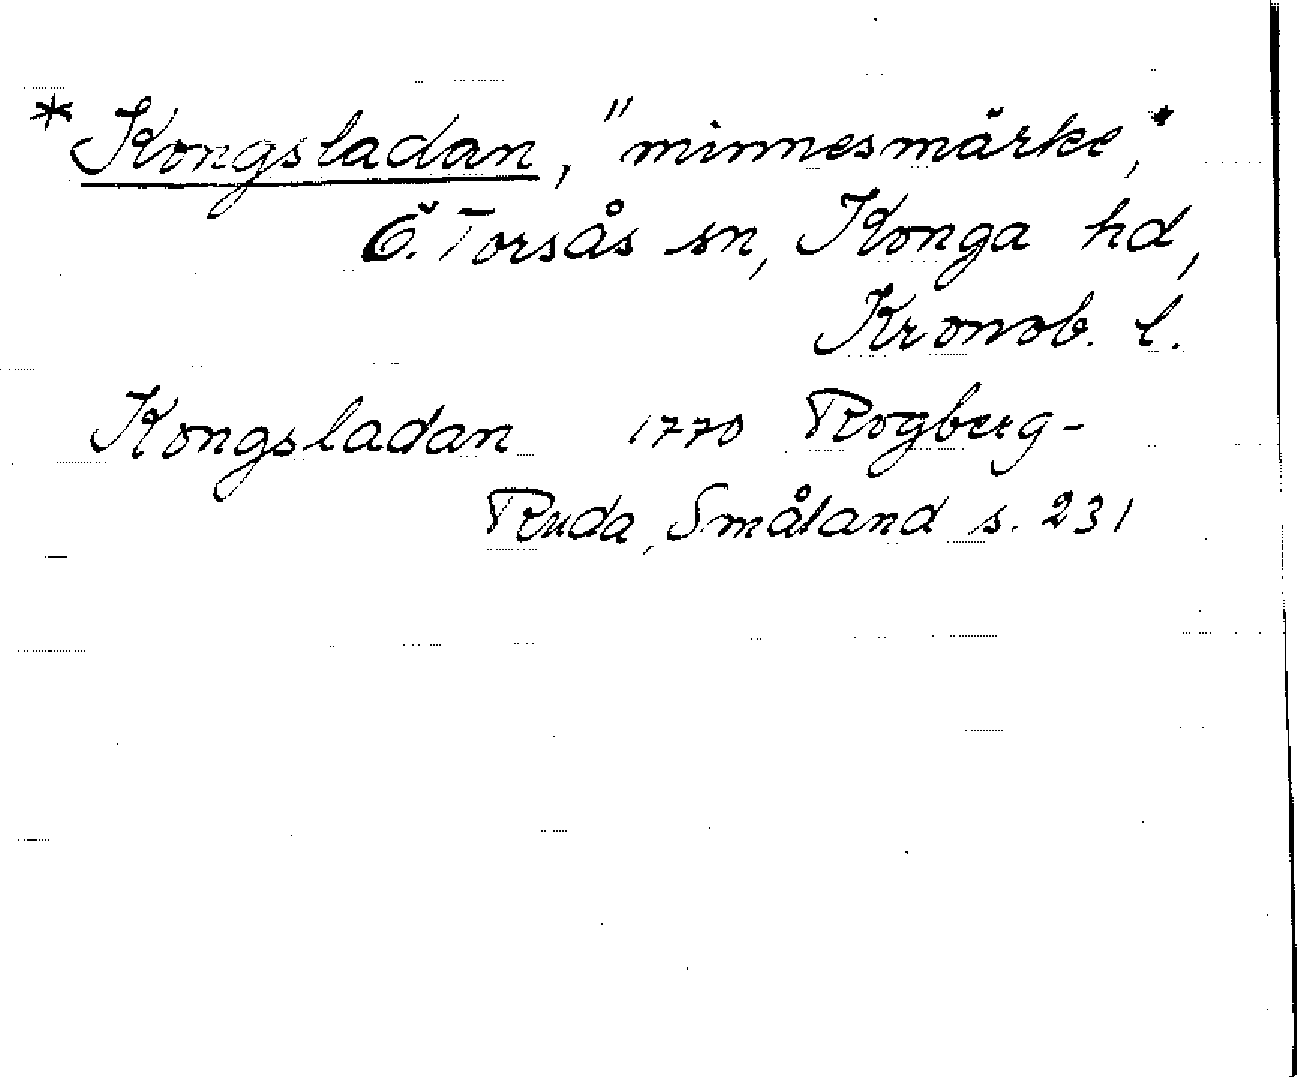 * Kongsladan, "minnesmärke,"
Ö. Torsås sn, Konga hd,
Kronob. l.
Kongsladan 1770 Rogberg-
Ruda, Småland s. 231